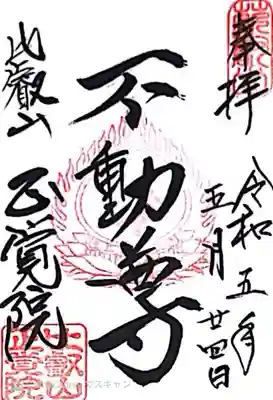 奉拝
令和五年
五月廿四日
不動尊
比叡山
正覚院
比叡山
正覚院